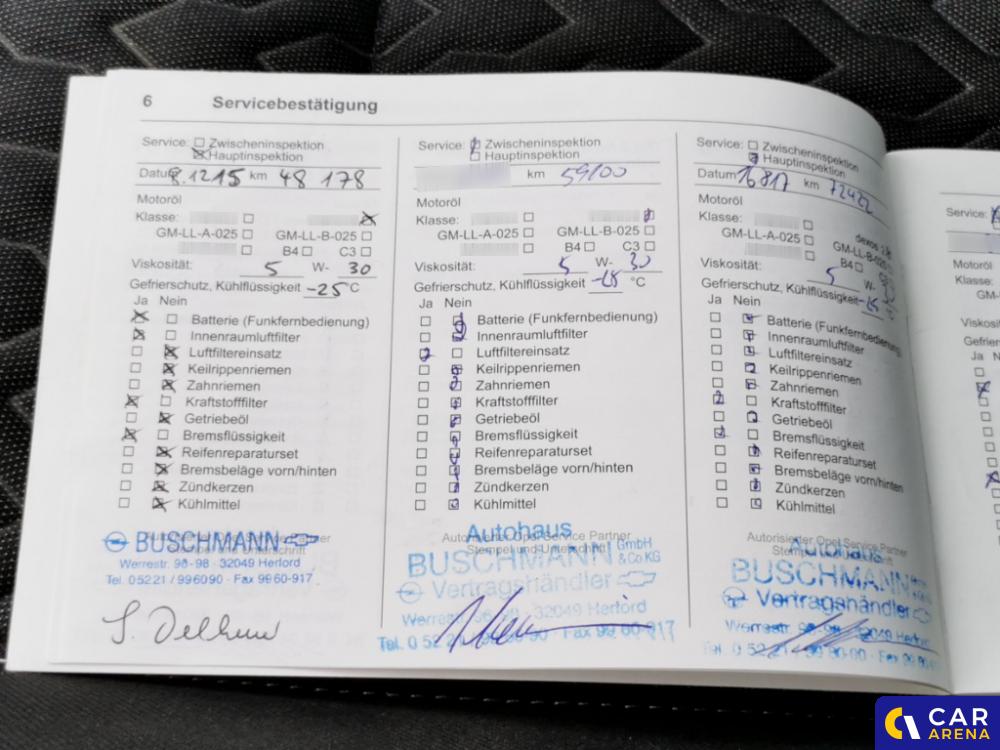 6 Servicebestätigung
Service: Zwischeninspektion
Hauptinspektion
Datum 8.12.15 km 48 178
Motoröl
Klasse:
GM-LL-A-025 GM-LL-B-025
B4 C3
Viskosität: 5 W- 30
Gefrierschutz, Kühlflüssigkeit -25 °C
Ja Nein
Batterie (Funkfernbedienung)
Innenraumluftfilter
Luftfiltereinsatz
Keilrippenriemen
Zahnriemen
Kraftstofffilter
Getriebeöl
Bremsflüssigkeit
Reifenreparaturset
Bremsbeläge vorn/hinten
Zündkerzen
Kühlmittel
BUSCHMANN
Werrestr. 96-98 · 32049 Herford
Tel. 05221 / 996090 · Fax 9960-917
Service: Zwischeninspektion
Hauptinspektion
km 59100
Motoröl
Klasse:
GM-LL-A-025 GM-LL-B-025
B4 C3
Viskosität: 5 W- 30
Gefrierschutz, Kühlflüssigkeit °C
Ja Nein
Batterie (Funkfernbedienung)
Innenraumluftfilter
Luftfiltereinsatz
Keilrippenriemen
Zahnriemen
Kraftstofffilter
Getriebeöl
Bremsflüssigkeit
Reifenreparaturset
Bremsbeläge vorn/hinten
Zündkerzen
Kühlmittel
Autorisierter Opel Service Partner
Stempel und Unterschrift
Autohaus
BUSCHMANN GmbH & Co KG
Vertragshändler
32049 Herford
Service: Zwischeninspektion
Hauptinspektion
Datum 16.8.17 km 72422
Motoröl
Klasse:
GM-LL-A-025 GM-LL-B-025
B4
Viskosität: 5 W-
Gefrierschutz, Kühlflüssigkeit °C
Ja Nein
Batterie (Funkfernbedienung)
Innenraumluftfilter
Luftfiltereinsatz
Keilrippenriemen
Zahnriemen
Kraftstofffilter
Getriebeöl
Bremsflüssigkeit
Reifenreparaturset
Bremsbeläge vorn/hinten
Zündkerzen
Kühlmittel
Autorisierter Opel Service Partner
Autohaus
BUSCHMANN
Vertragshändler
Service:
Motoröl
Klasse:
Ja
CAR
ARENA